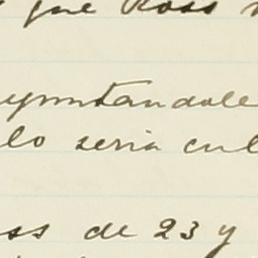 que Ross
yuntandole
lo seria cul
ss de 23 y